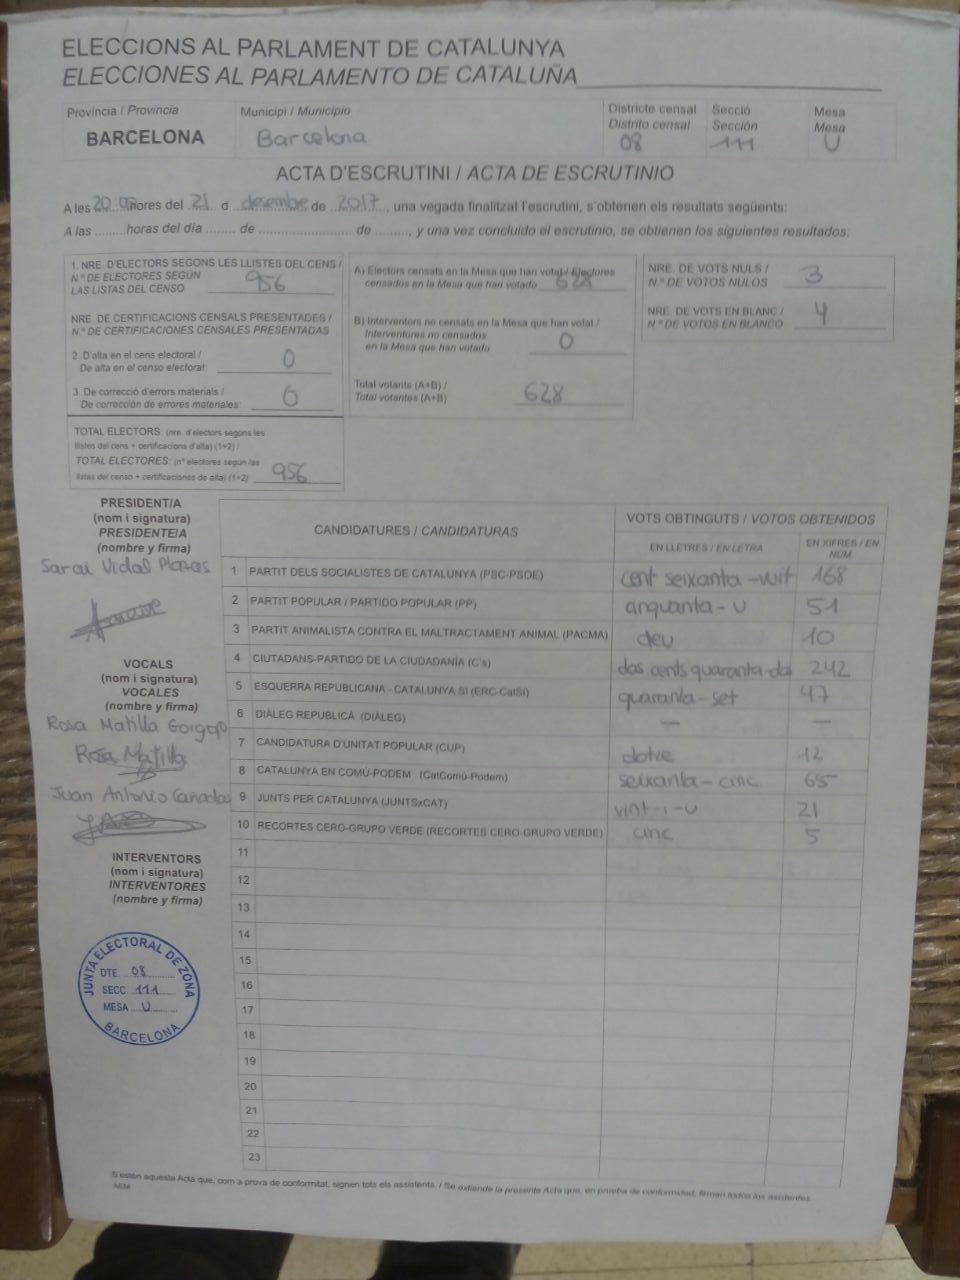 ELECCIONS AL PARLAMENT DE CATALUNYA
ELECCIONES AL PARLAMENTO DE CATALUÑA
Província / Provincia
BARCELONA
Municipi / Municipio
Barcelona
Districte censal
Distrito censal
08
Secció
Sección
111
Mesa
Mesa
U
ACTA D'ESCRUTINI / ACTA DE ESCRUTINIO
A les 20:00 hores del 21 d desembre de 2017, una vegada finalitzat l'escrutini, s'obtenen els resultats següents:
A las ........ horas del día ........ de ........................ de ........, y una vez concluido el escrutinio, se obtienen los siguientes resultados:
1. NRE. D'ELECTORS SEGONS LES LLISTES DEL CENS /
N.º DE ELECTORES SEGÚN
LAS LISTAS DEL CENSO 956
NRE. DE CERTIFICACIONS CENSALS PRESENTADES /
N.º DE CERTIFICACIONES CENSALES PRESENTADAS
2. D'alta en el cens electoral /
De alta en el censo electoral: 0
3. De correcció d'errors materials /
De corrección de errores materiales: 0
TOTAL ELECTORS: (nre. d'electors segons les
llistes del cens + certificacions d'alta) (1+2) /
TOTAL ELECTORES: (nº electores según las
listas del censo + certificaciones de alta) (1+2) 956
A) Electors censats en la Mesa que han votat / Electores
censados en la Mesa que han votado 628
B) Interventors no censats en la Mesa que han votat /
Interventores no censados
en la Mesa que han votado 0
Total votants (A+B) /
Total votantes (A+B) 628
NRE. DE VOTS NULS /
N.º DE VOTOS NULOS 3
NRE. DE VOTS EN BLANC /
N.º DE VOTOS EN BLANCO 4
PRESIDENT/A
(nom i signatura)
PRESIDENTE/A
(nombre y firma)
Sarai Vidal Plazas
VOCALS
(nom i signatura)
VOCALES
(nombre y firma)
Rosa Matilla
Rosa Matilla
Juan Antonio Cañadas
INTERVENTORS
(nom i signatura)
INTERVENTORES
(nombre y firma)
JUNTA ELECTORAL DE ZONA
DTE 08
SECC 111
MESA U
BARCELONA
CANDIDATURES / CANDIDATURAS
VOTS OBTINGUTS / VOTOS OBTENIDOS
EN LLETRES / EN LETRA
EN XIFRES / EN
NÚM
1 PARTIT DELS SOCIALISTES DE CATALUNYA (PSC-PSOE) cent seixanta-vuit 168
2 PARTIT POPULAR / PARTIDO POPULAR (PP) cinquanta-u 51
3 PARTIT ANIMALISTA CONTRA EL MALTRACTAMENT ANIMAL (PACMA) deu 10
4 CIUTADANS-PARTIDO DE LA CIUDADANÍA (C's) dos cents quaranta-dos 242
5 ESQUERRA REPUBLICANA - CATALUNYA SÍ (ERC-CatSí) quaranta-set 47
6 DIÀLEG REPUBLICÀ (DIÀLEG) — —
7 CANDIDATURA D'UNITAT POPULAR (CUP) dotze 12
8 CATALUNYA EN COMÚ-PODEM (CatComú-Podem) seixanta-cinc 65
9 JUNTS PER CATALUNYA (JUNTSxCAT) vint-i-u 21
10 RECORTES CERO-GRUPO VERDE (RECORTES CERO-GRUPO VERDE) cinc 5
11
12
13
14
15
16
17
18
19
20
21
22
23
S'estén aquesta Acta que, com a prova de conformitat, signen tots els assistents. / Se extiende la presente Acta que, en prueba de conformidad, firman todos los asistentes.